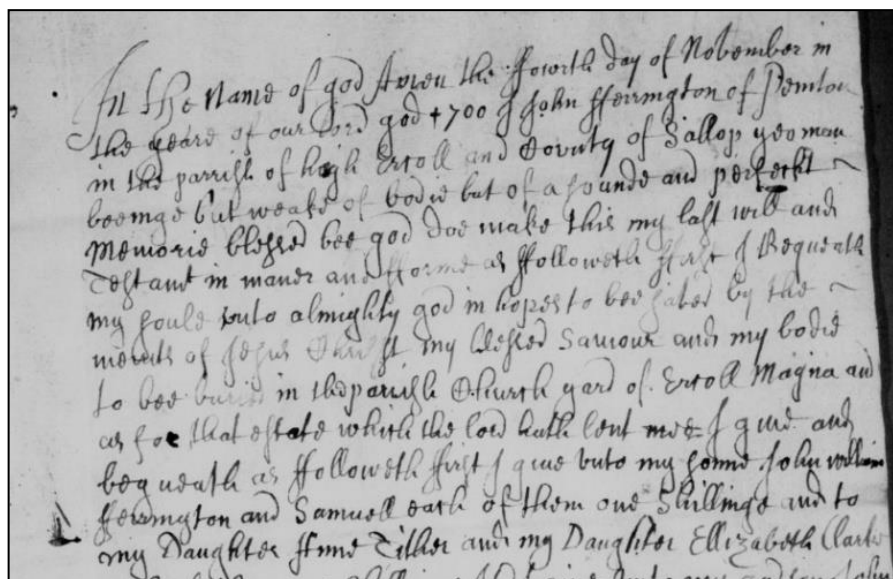 In the Name of god Amen the ffowrth day of November in
the yeare of our Lord god 1700 I John fferrington of
in the parrish of high Ercoll and County of Sallop yeoman
beeinge but weake of bodie but of a sounde and perfeckt
Memorie blessed bee god doe make this my last will and
Testamt in maner and fforme as ffolloweth ffirst I Bequeath
my soule unto almighty god in hopes to bee saved by the
merits of Jesus Christ my blessed Saviour and my bodie
to bee buried in the parish Church yard of Ercoll Magna and
as for that estate which the lord hath lent mee I give and
bequeath as ffolloweth ffirst I give unto my sonne John william
fferrington and Samuell each of them one Shillinge and to
my Daughter Anne Tither and my Daughter Ellizabeth Clarke